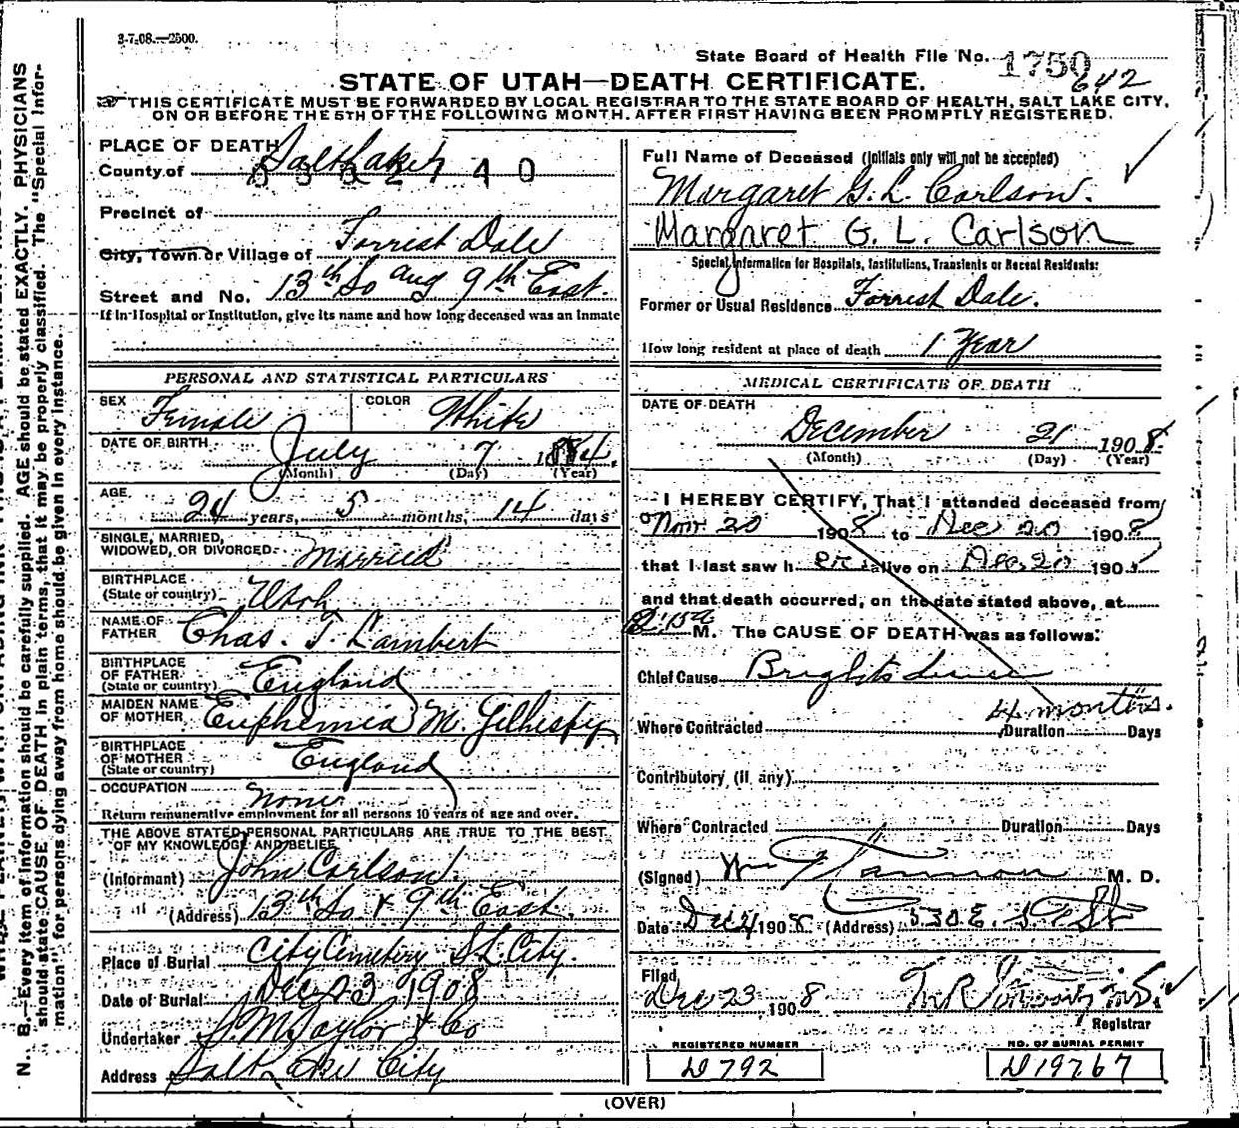 3-7-08.—2500.
State Board of Health File No. 1750
642
STATE OF UTAH—DEATH CERTIFICATE.
THIS CERTIFICATE MUST BE FORWARDED BY LOCAL REGISTRAR TO THE STATE BOARD OF HEALTH, SALT LAKE CITY,
ON OR BEFORE THE 5TH OF THE FOLLOWING MONTH. AFTER FIRST HAVING BEEN PROMPTLY REGISTERED.
PLACE OF DEATH
County of Salt Lake
Precinct of
City, Town or Village of Forrest Dale
Street and No. 13th So and 9th East.
If in Hospital or Institution, give its name and how long deceased was an inmate
PERSONAL AND STATISTICAL PARTICULARS
SEX Female COLOR White
DATE OF BIRTH July 7 1884.
(Month) (Day) (Year)
AGE 24 years, 5 months, 14 days
SINGLE, MARRIED,
WIDOWED, OR DIVORCED Married
BIRTHPLACE
(State or country) Utah
NAME OF
FATHER Chas. T. Lambert
BIRTHPLACE
OF FATHER
(State or country) England
MAIDEN NAME
OF MOTHER Euphemia M. Gilhespy
BIRTHPLACE
OF MOTHER
(State or country) England
OCCUPATION None
Return remunerative employment for all persons 10 years of age and over.
THE ABOVE STATED PERSONAL PARTICULARS ARE TRUE TO THE BEST
OF MY KNOWLEDGE AND BELIEF
(Informant) John Carlson.
(Address) 13th So & 9th East.
Place of Burial City Cemetery S.L. City.
Date of Burial Dec 23 1908
Undertaker S. M. Taylor & Co
Address Salt Lake City
Full Name of Deceased (Initials only will not be accepted)
Margaret G. L. Carlson.
Margaret G. L. Carlson
Special Information for Hospitals, Institutions, Transients or Recent Residents:
Former or Usual Residence Forrest Dale.
How long resident at place of death 1 Year
MEDICAL CERTIFICATE OF DEATH
DATE OF DEATH
December 21 1908.
(Month) (Day) (Year)
I HEREBY CERTIFY, That I attended deceased from
Nov 20 1908 to Dec 20 1908
that I last saw her alive on Dec 20 190
and that death occurred, on the date stated above, at
M. The CAUSE OF DEATH was as follows:
Chief Cause Brights disease
4 months.
Where Contracted Duration Days
Contributory (if any)
Where Contracted Duration Days
(Signed) Wm M. D.
Date Dec 21 1908 (Address) 530 E.
Filed
Dec 23 1908
Registrar
REGISTERED NUMBER
D 792
NO. OF BURIAL PERMIT
D 19767
(OVER)
N. B.—Every item of information should be carefully supplied. AGE should be stated EXACTLY. PHYSICIANS
should state CAUSE OF DEATH in plain terms, that it may be properly classified. The "Special Infor-
mation" for persons dying away from home should be given in every instance.